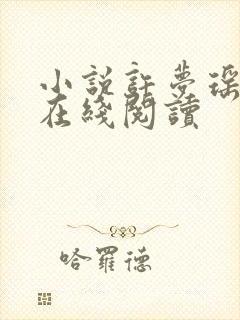 小説許夢瑤
在綫閱讀
哈羅德